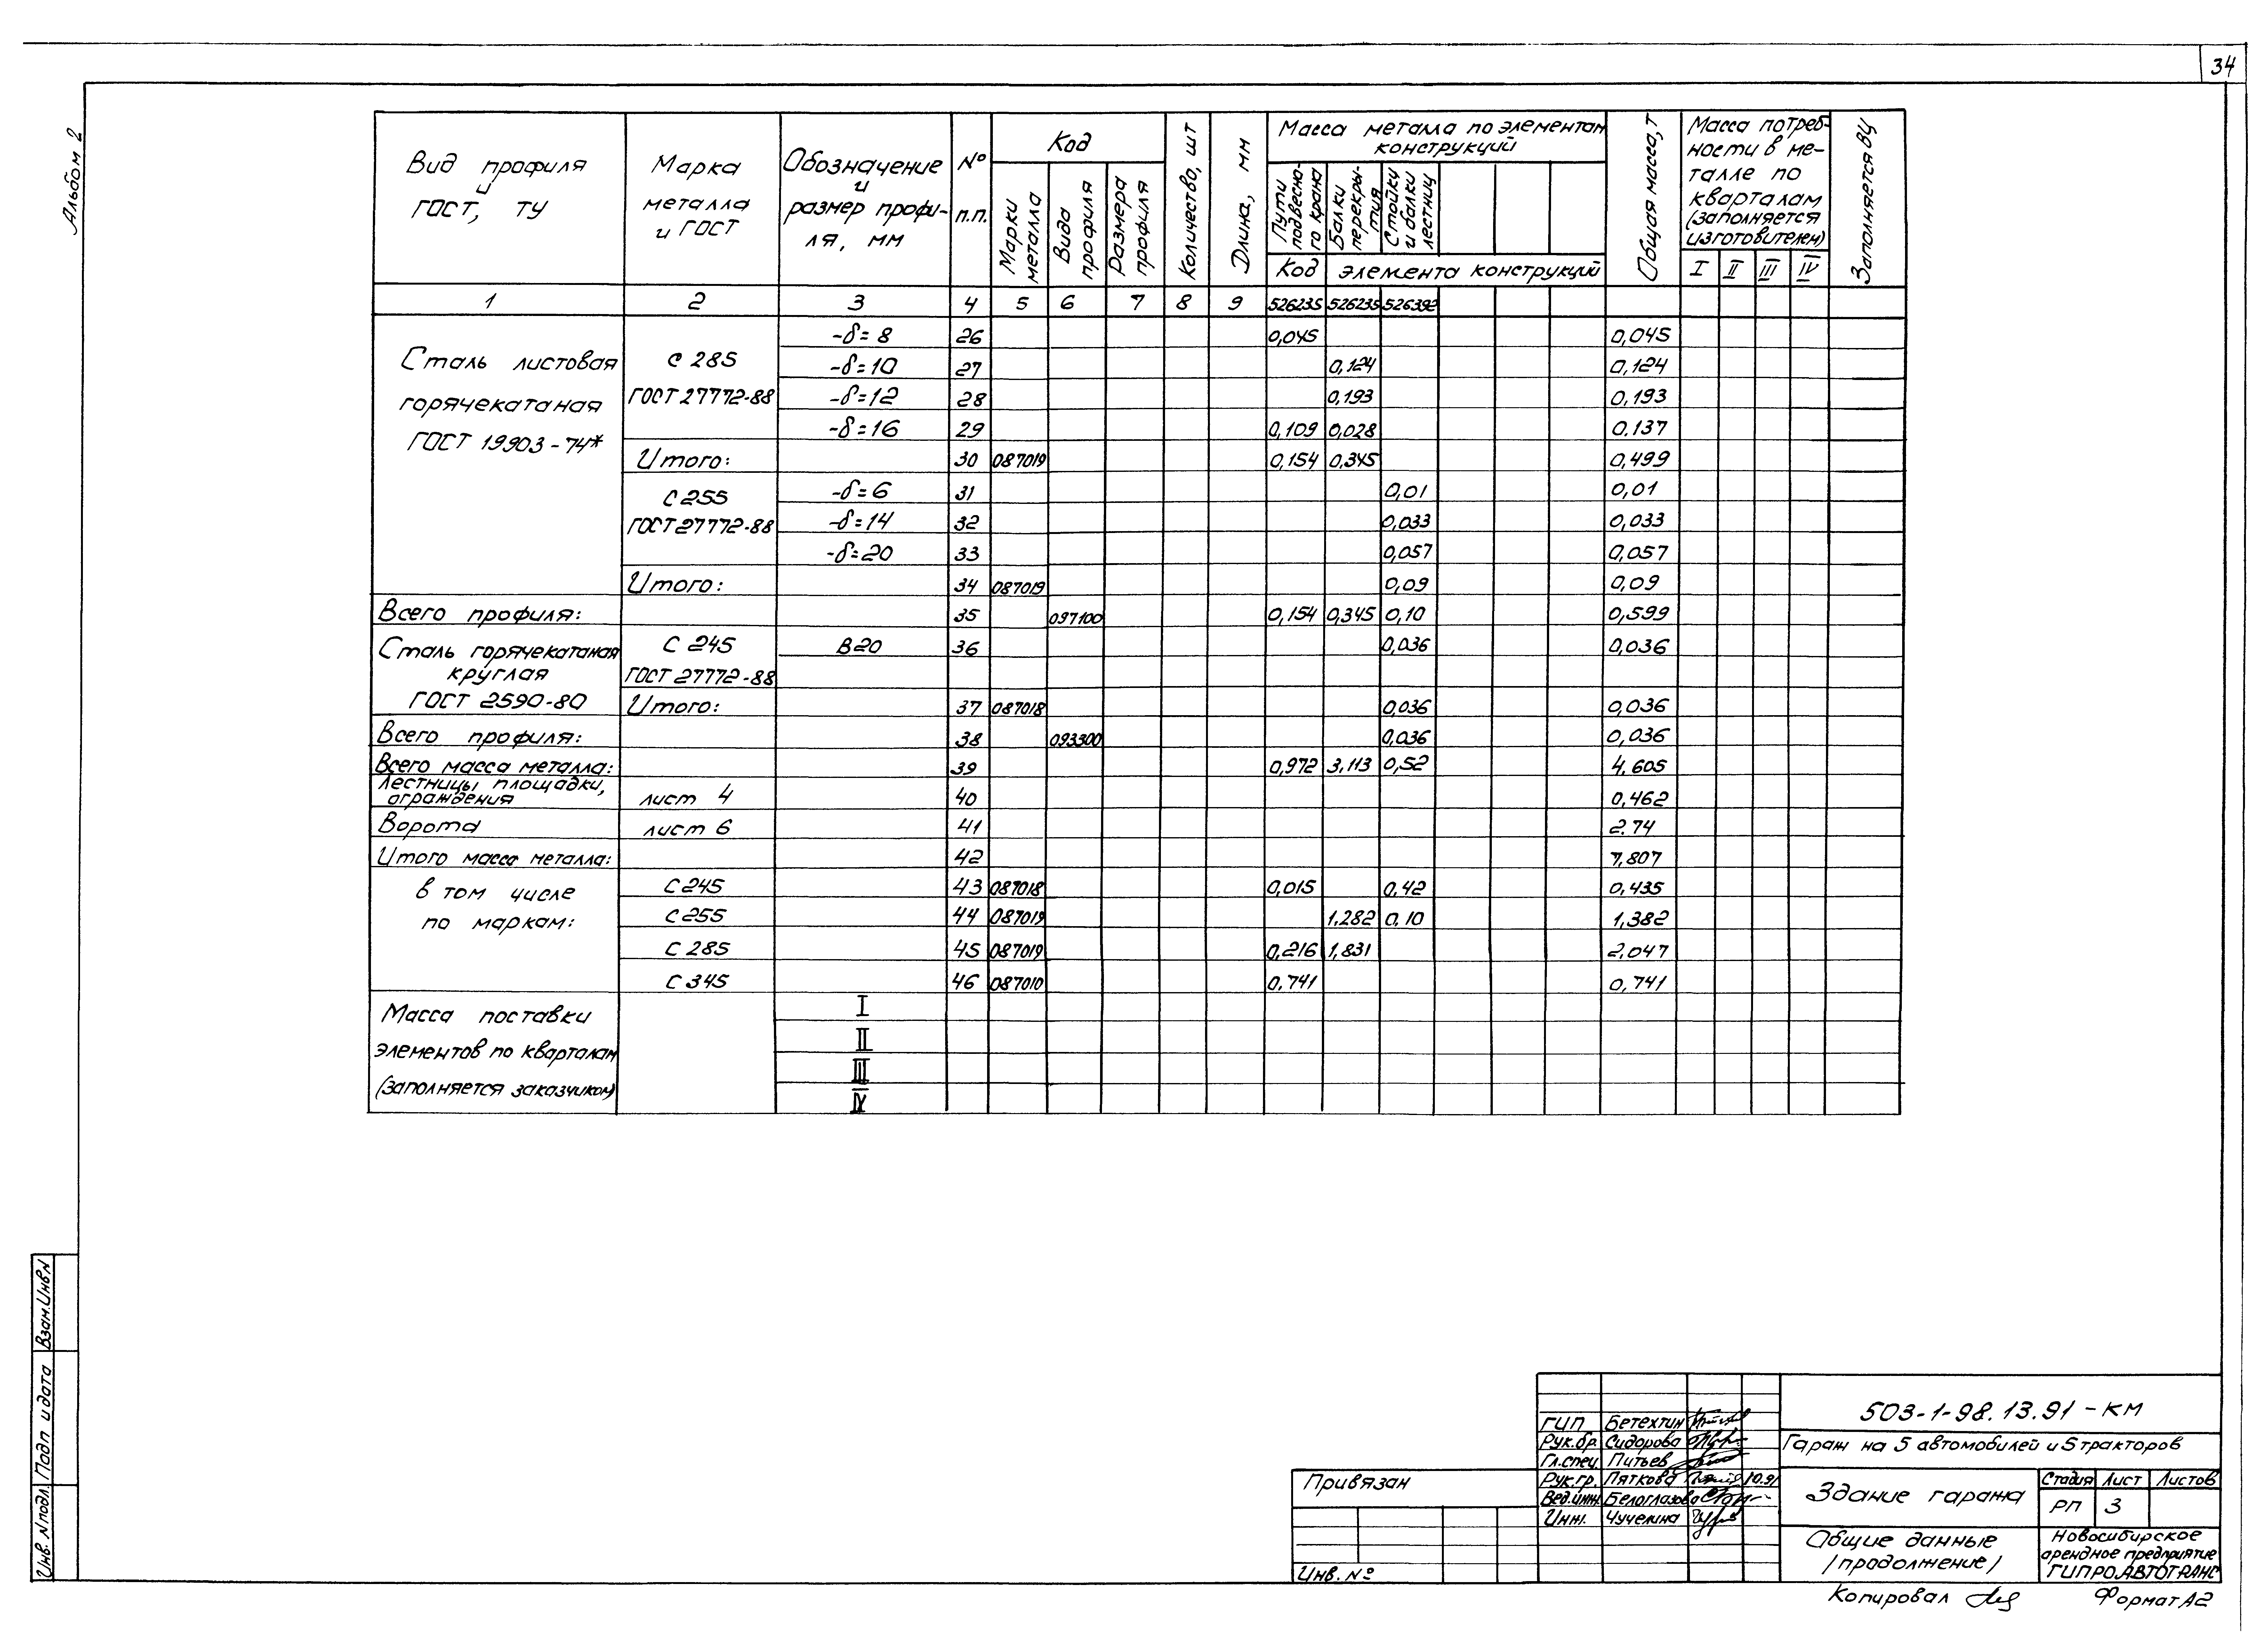 34
Альбом 2
Вид профиля и ГОСТ, ТУ
Марка металла и ГОСТ
Обозначение и размер профиля, мм
№ п.п.
Код
Марки металла
Вида профиля
Размера профиля
Количество, шт
Длина, мм
Масса металла по элементам конструкций
Пути подвесного крана
Балки перекрытия
Стойки и балки лестниц
Код элемента конструкций
Общая масса, т
Масса потребности в металле по кварталам (заполняется изготовителем)
I II III IV
Заполняется ВЦ
1 2 3 4 5 6 7 8 9 526235 526235 526392
Сталь листовая горячекатаная ГОСТ 19903-74*
С 285 ГОСТ 27772-88
-δ=8 26 0,045 0,045
-δ=10 27 0,124 0,124
-δ=12 28 0,193 0,193
-δ=16 29 0,109 0,028 0.137
Итого: 30 087019 0,154 0,345 0,499
С 255 ГОСТ 27772-88
-δ=6 31 0,01 0,01
-δ=14 32 0,033 0,033
-δ=20 33 0,057 0,057
Итого: 34 087019 0,09 0,09
Всего профиля: 35 097100 0,154 0,345 0,10 0,599
Сталь горячекатаная круглая ГОСТ 2590-80
С 245 ГОСТ 27772-88
В20 36 0,036 0,036
Итого: 37 087018 0,036 0,036
Всего профиля: 38 093300 0,036 0,036
Всего масса металла: 39 0,972 3,113 0,52 4,605
Лестницы, площадки, ограждения лист 4 40 0,462
Ворота лист 6 41 2.74
Итого масса металла: 42 7,807
в том числе по маркам:
С 245 43 087018 0,015 0,42 0,435
С 255 44 087019 1,282 0,10 1,382
С 285 45 087019 0,216 1,831 2,047
С 345 46 087010 0,741 0,741
Масса поставки элементов по кварталам (заполняется заказчиком)
I
II
III
IV
Инв. № подл. Подп и дата Взам.Инв.№
Привязан
Инв. №
ГИП Бетехтин
Рук.бр. Сидорова
Гл.спец. Питьев
Рук.гр. Пяткова 10.91
Вед.инж. Белоглазова
Инж. Чучелина
503-1-98.13.91-КМ
Гараж на 5 автомобилей и 5 тракторов
Здание гаража
Стадия Лист Листов
РП 3
Общие данные
/продолжение/
Новосибирское
арендное предприятие
ГИПРОАВТОТРАНС
Копировал
Формат А2